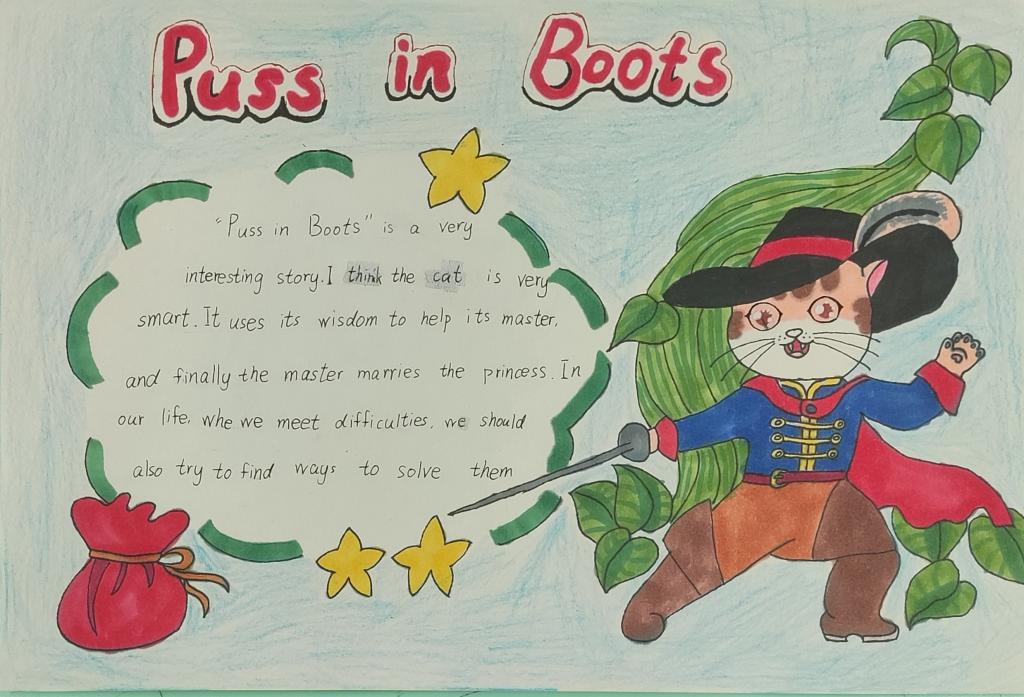 Puss in Boots
"Puss in Boots" is a very
interesting story. I think the cat is very
smart. It uses its wisdom to help its master,
and finally the master marries the princess. In
our life, whe we meet difficulties, we should
also try to find ways to solve them